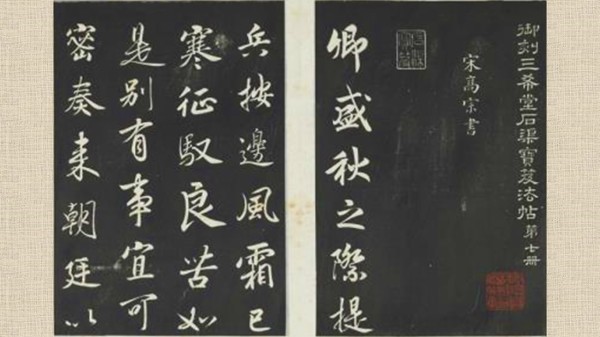 御刻三希堂石渠寶笈法帖第七册
宋高宗書
卿盛秋之際提
兵按邊風霜已
寒征馭良苦如
是別有事宜可
密奏来朝廷以